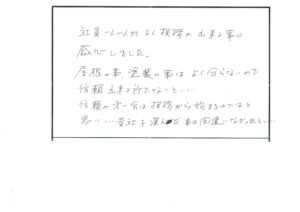 社員一人一人が よく挨拶の出来る事に
感心しました。
屋根の事、塗装の事は よく分らないので
信頼出来る所でないと…
信頼の才一歩は挨拶から始まるのでないかと
思い…貴社を選んだ事は間違いなかったと…